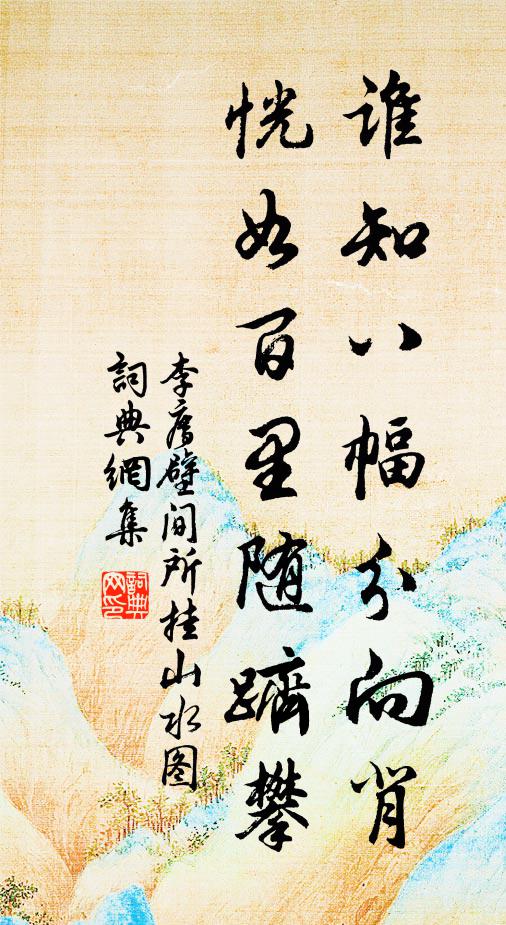 谁知八幅分向背
恍如百里随躋攀
李壁间所挂山水图
詞典網集
詞典网印